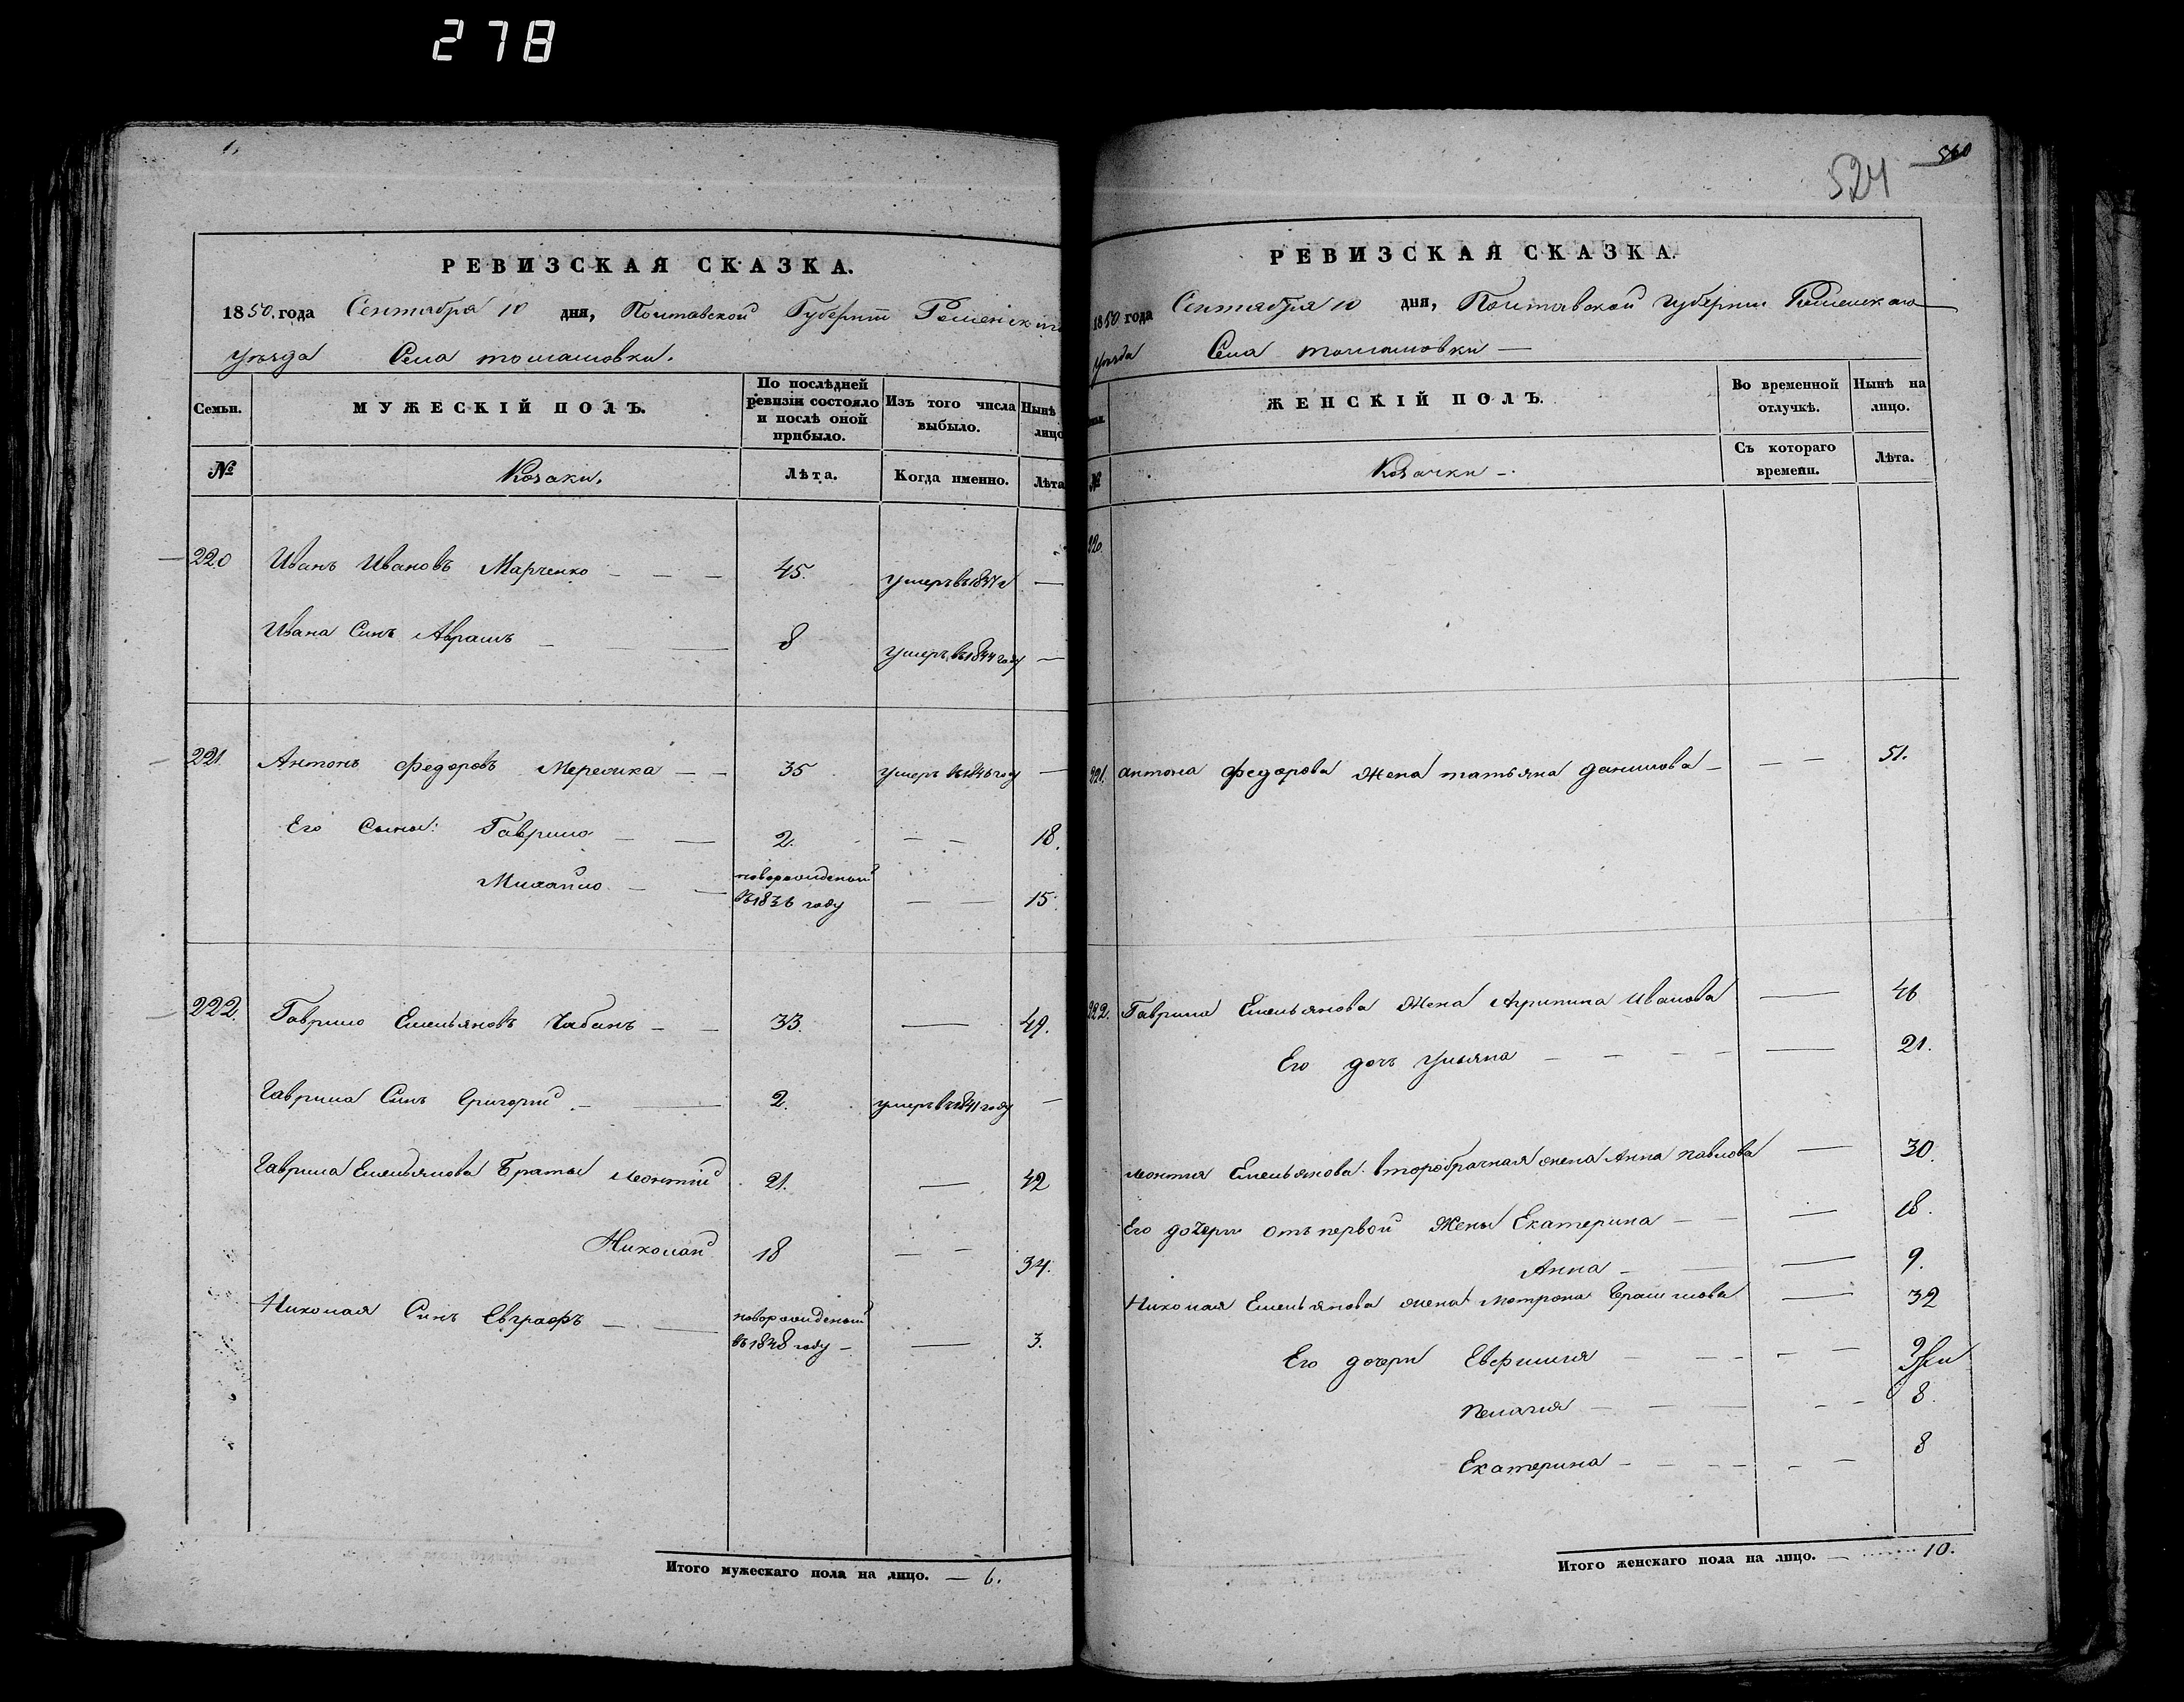 278
РЕВИЗСКАЯ СКАЗКА.
1850. года Сентября 10 дня, Полтавской Губернїи Роменскаго
уезда Села толстовки.
Семьи.
МУЖЕСКІЙ ПОЛЪ.
По послѣдней ревизіи состояло и послѣ оной прибыло.
Изъ того числа выбыло.
Нынѣ лицо
№
Козаки.
Лѣта.
Когда именно.
Лѣта
220 Иванъ Ивановъ Марченко — — — 45. умеръ въ 1847 г —
Ивана Сынъ Аврамъ — — — 8 умеръ въ 1844 году —
221. Антонъ Федоровъ Мерещка — — 35 умеръ въ 1846 году —
Его Сыны: Гаврило — — 2. — — 18.
Михайло — — новорожденый въ 1836 году — — 15.
222. Гаврило Емельяновъ Чабанъ — — 33. — 49.
Гаврила Сынъ Григорій — — 2. умеръ въ 1841 году —
Гаврила Емельянова Браты Леонтій 21. — 42
Николай 18 — — 34.
Николая Сынъ Евграфъ — — новорожденый въ 1848 году — — 3.
Итого мужескаго пола на лицо. — 6.
524 560
РЕВИЗСКАЯ СКАЗКА.
1850 года Сентября 10 дня, Полтавской губернии Роменскаго
уезда Села
ЖЕНСКІЙ ПОЛЪ.
Во временной отлучкѣ.
Нынѣ на лицо.
№
Козачки —
Съ котораго времени.
Лѣта.
220
221. антона Федорова Жена татьяна данилова — — — 51.
222. Гаврила Емельянова Жена Агрипина Иванова — 46
Его дочь Ульяна — — — — — 21.
Леонтия Емельянова второбрачная жена Анна павлова — 30.
Его дочери отъ первой Жены Екатерина — — — 18.
Анна — — — 9.
Николая Емельянова жена Мотрона — 32
Его дочери Евфимия — — — — —
Пелагия — — — — — 8.
Екатерина — — — — — — 8
Итого женскаго пола на лицо. — 10.